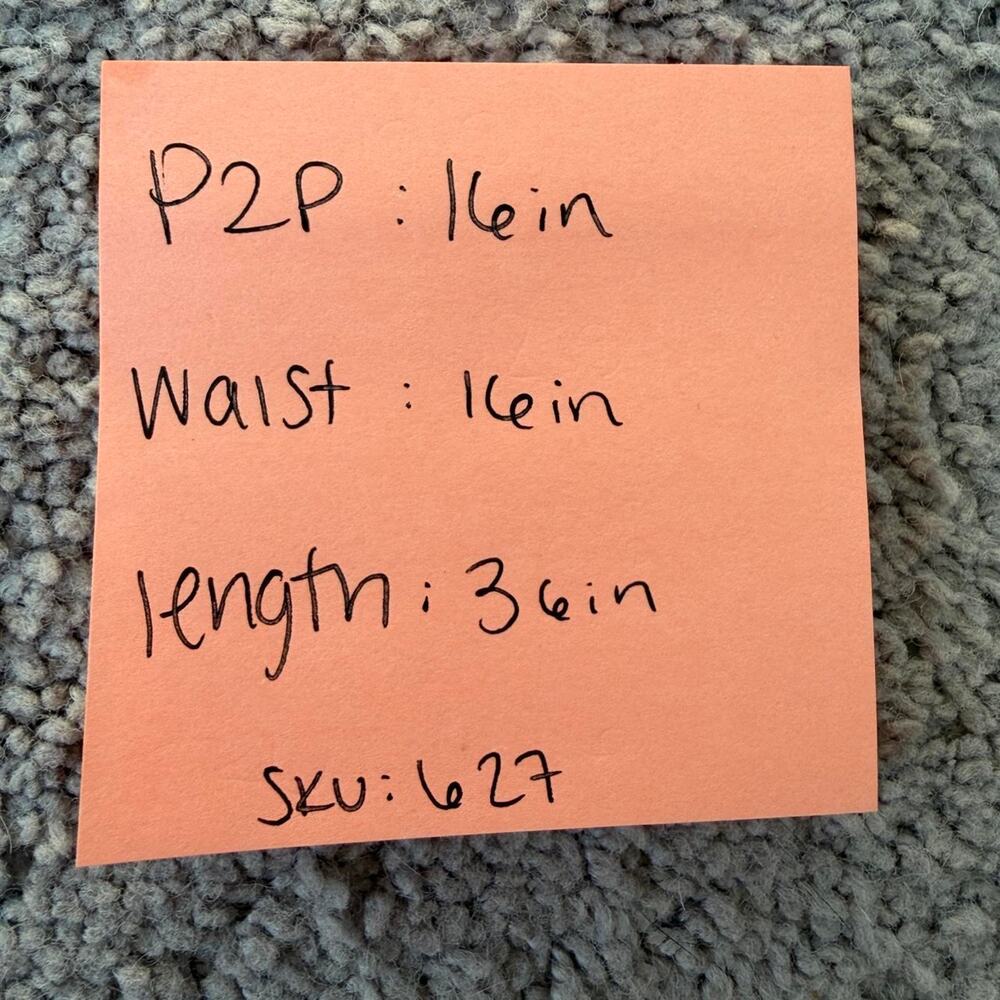 P2P : 16in
Waist : 16in
length : 36in
SKU: 627